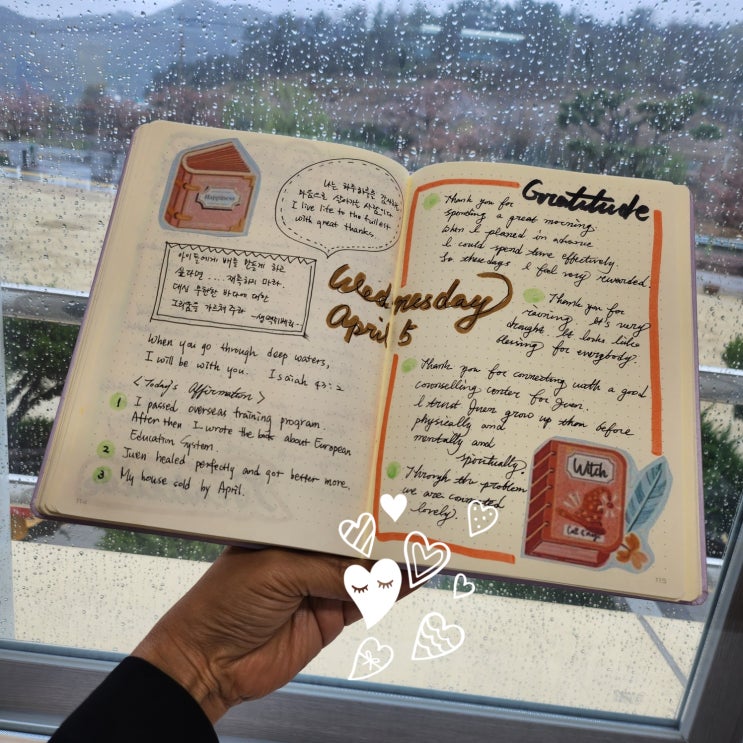 Happiness
나는 하루하루를 감사하는
마음으로 살아가는 사람이다
I live life to the fullest
with great thanks.
아이들에게 배를 만들게 하고
싶다면 .... 재촉하지 마라.
대신 무한한 바다에 대한
그리움을 가르쳐 주라 -생텍쥐페리-
When you go through deep waters,
I will be with you. Isaiah 43:2
<Today's Affirmation>
1 I passed overseas training program.
After then I wrote the book about European
Education System.
2 Juen healed perfectly and got better more.
3 My house sold by April.
114
Wednesday
April 5
Gratitude
Thank you for
spending a great morning.
When I planed in advance
I could spend time effectively.
So these days I feel very rewarded.
Thank you for
raining. It's very
drought. It looks like
blessing for everybody.
Thank you for connecting with a good
counselling center for Juen.
I trust Juen grow up than before
physically and
mentally and
spiritually.
Through the problem
we are connected
lovely.
Witch
115